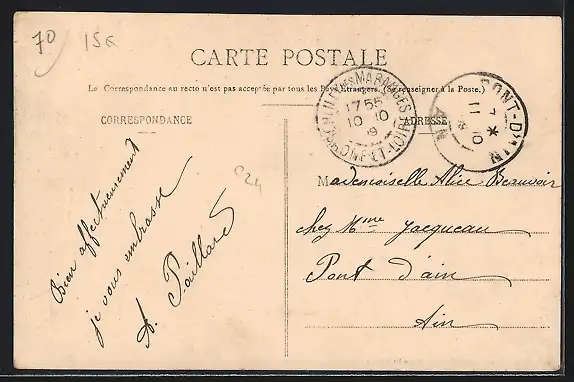 70
15a
CARTE POSTALE
La Correspondance au recto n'est pas acceptée par tous les Pays Étrangers. (Se renseigner à la Poste.)
CORRESPONDANCE
ADRESSE
17 55
10 10
19
MARANGES
ET-LOIRE
PONT-D'AIN
7 *
11 10
AIN
C24
Bien affectueusement
je vous embrasse
A. Paillard
Mademoiselle Alice Beauvoir
chez Mme Jacqueau
Pont d'ain
Ain